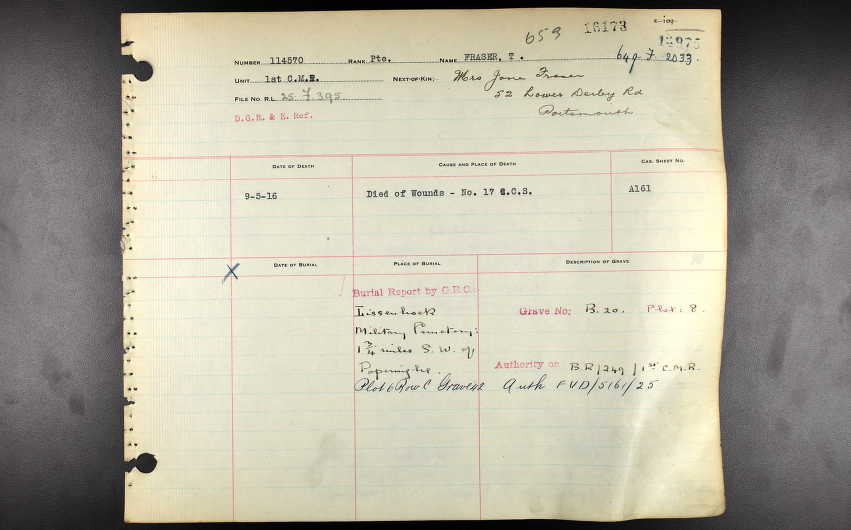 659 16173
NUMBER 114570 RANK Pte. NAME FRASER, T. 649-7-2033.
UNIT 1st C.M.R. NEXT-OF-KIN: Mrs Jane Fraser
FILE NO. R.L. 25-7-395 52 Lower Derby Rd
Portsmouth
D.G.R. & E. Ref.
DATE OF DEATH CAUSE AND PLACE OF DEATH CAS. SHEET NO.
9-5-16 Died of Wounds - No. 17 C.C.S. A161
DATE OF BURIAL PLACE OF BURIAL DESCRIPTION OF GRAVE
Burial Report by G.R.C.
Lissenhoek Grave No: B. 20. Plot: 8.
Military Cemetery:
1 3/4 miles S. W. of
Poperinghe. Authority on BR/249/1st C.M.R.
Plot 6 Row C Grave Auth FVD/5161/25